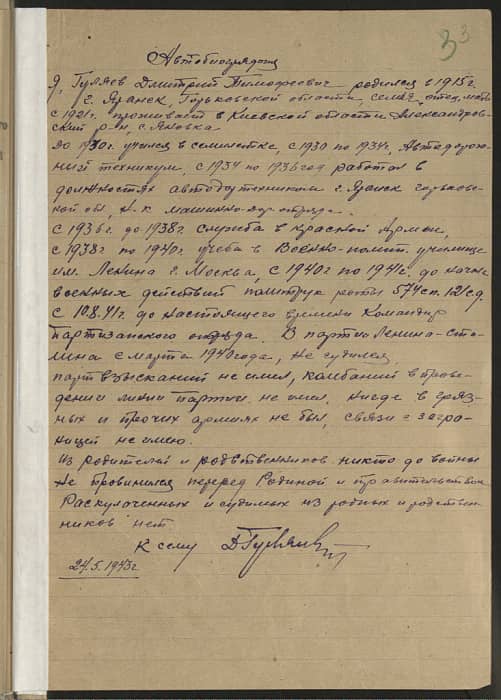 33
Автобиография
Я, Гуляев Дмитрий Тимофеевич родился в 1915г.
г. Яранск, Горьковской области, семья, отец, мать
с 1921г. проживает в Киевской области Александров-
ский р-н, с. Яновка.
До 1930г. учился в семилетке, с 1930 по 1934г. Автодорож-
ный техникум, с 1934 по 1936 год работал в
должностях автодортехником г. Яранск горьковс-
кой обл, Н-к машинно-дор. отряда.
С 1936г. до 1938г. служба в красной Армии,
с 1938г. по 1940г. учеба в Военно-полит. училище
им. Ленина г. Москва, с 1940г. по 1941г. до начала
военных действий политрук роты 574 сп. 121 с.д.
с 10.8.41г. до настоящего времени Командир
партизанского отряда. В партии Ленина-Ста-
лина с марта 1940 года, не судился,
парт взысканий не имел, колбаний в прове-
дении линии партии не имел, нигде в
и прочих армиях не был, связи с загра-
ницей не имею.
Из родителей и родственников никто до войны
не провинился перед Родиной и правительством
Раскулаченных и судимых из родных и родствен-
ников нет
К сему ДГуляев
24.5.1943г.